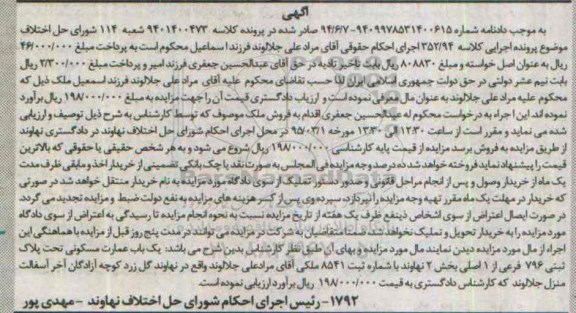 آگهی
به موجب دادنامه شماره ۹۴۰۹۹۷۸۵۳۱۴۰۰۶۱۵-۹۴/۶/۷ صادر شده در پرونده کلاسه ۹۴۰۱۴۰۰۴۷۳ شعبه ۱۱۴ شورای حل اختلاف
موضوع پرونده اجرایی کلاسه ۳۵۲/۹۴ اجرای احکام حقوقی آقای مراد علی جلالوند فرزند اسماعیل محکوم است به پرداخت مبلغ ۴۶/۰۰۰/۰۰۰
ریال به عنوان اصل خواسته و مبلغ ۸۰۸۸۳۰ ریال بابت تاخیر تادیه در حق آقای عبدالحسین جعفری فرزند امیر و پرداخت مبلغ ۲/۳۰۰/۰۰۰ ریال
بابت نیم عشر دولتی در حق دولت جمهوری اسلامی ایران لذا حسب تقاضای محکوم علیه آقای مراد علی جلالوند فرزند اسمعیل ملک ذیل که
محکوم علیه مراد علی جلالوند به عنوان مال معرفی نموده است و ارزیاب دادگستری قیمت آن را جهت مزایده به مبلغ ۱۹۸/۰۰۰/۰۰۰ ریال برآورد
نموده اند، این اجراء به درخواست محکوم له عبدالحسین جعفری اقدام به فروش ملک موصوف که توسط کارشناس به شرح ذیل توصیف و ارزیابی
شده می نماید و مقرر است از ساعت ۱۲:۳۰ الی ۱۳:۳۰ مورخه ۹۵/۰۳/۱ در محل اجرای احکام شورای حل اختلاف نهاوند در دادگستری نهاوند
از طریق مزایده به فروش برسد مزایده از قیمت پایه کارشناسی ۱۹۸/۰۰۰/۰۰۰ ریال شروع می شود و به هر شخص حقیقی یا حقوقی که بالاترین
قیمت را پیشنهاد نماید فروخته خواهد شد ده درصد وجه مزایده فی المجلس به صورت نقد یا چک بانکی تضمینی از خریدار اخذ و مابقی ظرف مدت
یک ماه از خریدار وصول و پس از انجام مراحل قانونی و صدور دستور تملیک از سوی دادگاه مورد مزایده به نام خریدار منتقل خواهد شد در صورتی
که خریدار در مهلت یک ماه مقرر تهیه وجه مزایده را نپردازد، سپرده وی پس از کسر هزینه های مزایده به نفع دولت ضبط و مزایده تجدید می گردد.
در صورت ایصال اعتراض از سوی اشخاص ذینفع ظرف یک هفته از تاریخ مزایده نسبت به نحوه انجام مزایده تا رسیدگی به اعتراض از سوی دادگاه
مورد مزایده را به خریدار تحویل و تملیک نخواهد شد ضمنا متقاضیان به شرکت در مزایده می توانند در مدت پنج روز قبل از مزایده با هماهنگی این
اجراء از مال مورد مزایده دیدن نمایند مال مورد مزایده و بهای آن طبق نظر کارشناس بدین شرح می باشد: یک باب عمارت مسکونی تحت پلاک
ثبتی ۷۹۶ فرعی از ۱ اصلی بخش ۲ نهاوند با شماره ثبت ۸۵۴۱ ملکی آقای مرادعلی جلالوند واقع در نهاوند گل زرد کوچه آزادگان آخر آسفالت
منزل جلالوند که کارشناس دادگستری به قیمت ۱۹۸/۰۰۰/۰۰۰ ریال برآورد ارزیابی نموده است.
۱۷۹۲- رئیس اجرای احکام شورای حل اختلاف نهاوند - مهدی پور